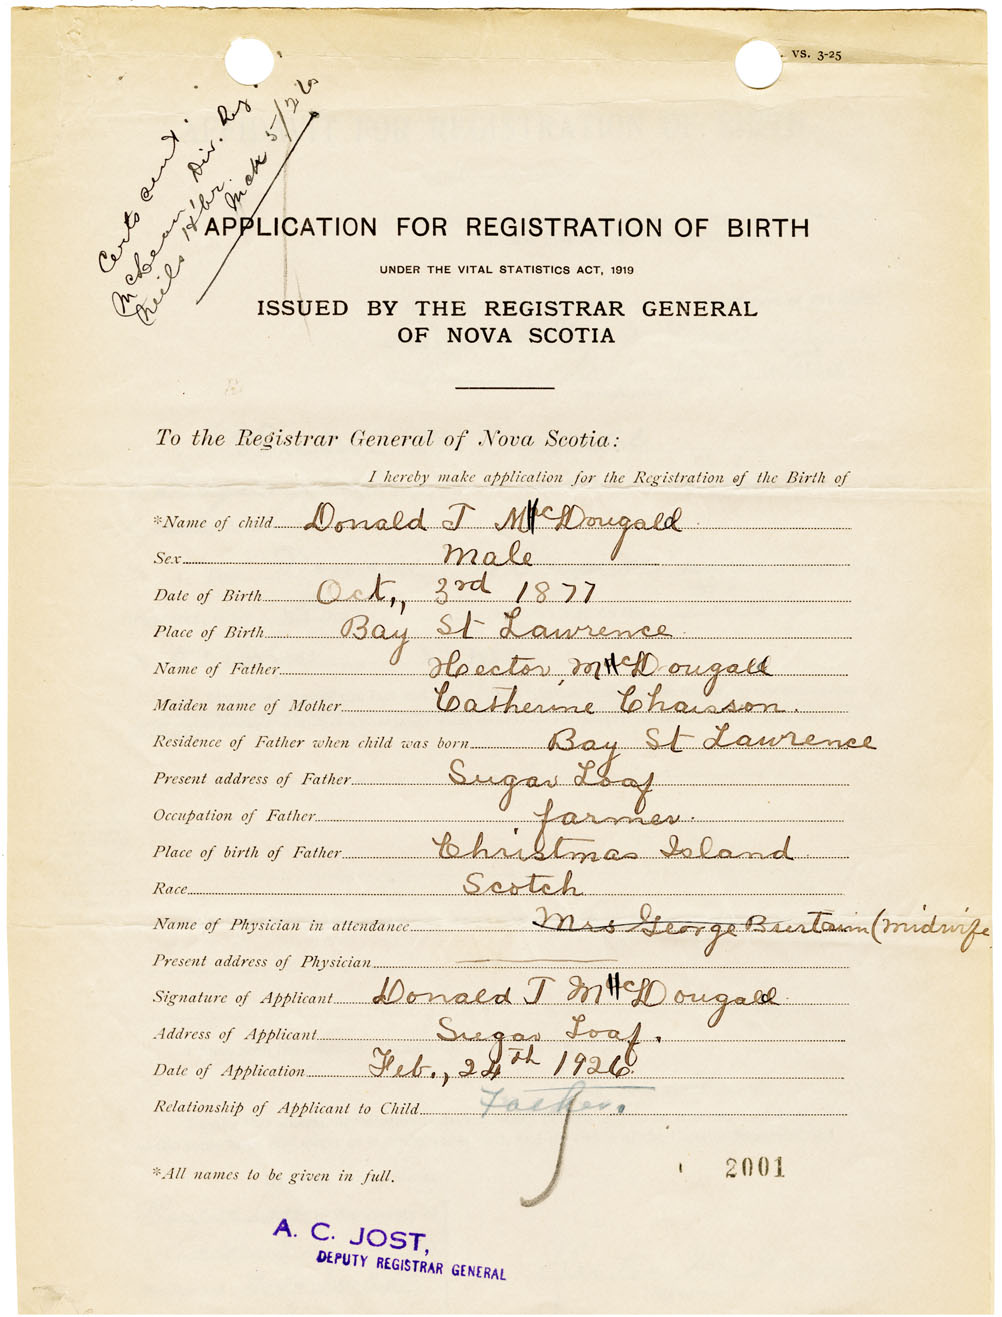 VS. 3-25
Certs sent
McLean Div. Reg
Neils Hbr.
Mch 5/26
APPLICATION FOR REGISTRATION OF BIRTH
UNDER THE VITAL STATISTICS ACT, 1919
ISSUED BY THE REGISTRAR GENERAL
OF NOVA SCOTIA
To the Registrar General of Nova Scotia:
I hereby make application for the Registration of the Birth of
*Name of child Donald J McDougald
Sex Male
Date of Birth Oct,, 3rd 1877
Place of Birth Bay St Lawrence
Name of Father Hector McDougall
Maiden name of Mother Catherine Chaisson.
Residence of Father when child was born Bay St Lawrence
Present address of Father Sugar Loaf
Occupation of Father farmer.
Place of birth of Father Christmas Island
Race Scotch
Name of Physician in attendance Mrs George (midwife
Present address of Physician
Signature of Applicant Donald J McDougall
Address of Applicant Sugar Loaf.
Date of Application Feb., 24th 1926
Relationship of Applicant to Child Father.
*All names to be given in full.
2001
A. C. JOST,
DEPUTY REGISTRAR GENERAL